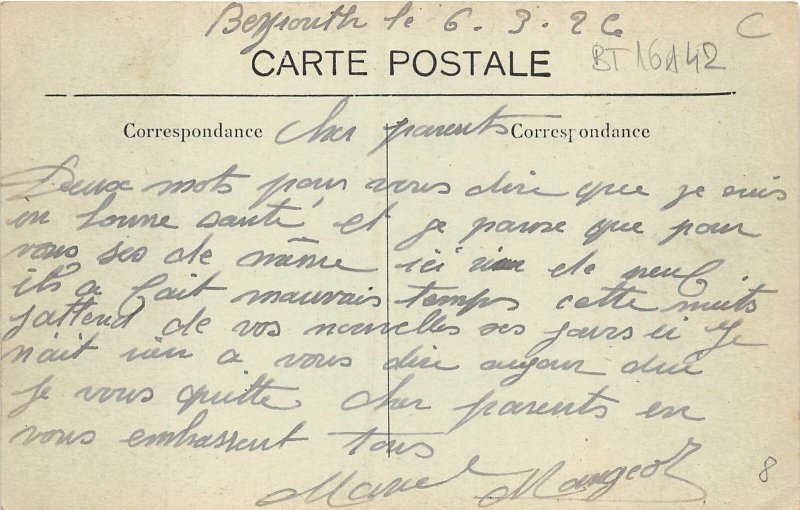 Beyrouth le 6. 3. 26
C
CARTE POSTALE
BT16A42
Correspondance
Cher parents
Correspondance
Deux mots pour vous dire que je suis
en bonne santé et je panse que pour
vous ses de même ici rien de neuf.
ils a fait mauvais temps cette nuits
jattend de vos nouvelles ses jours ci Je
n'ait rien a vous dire aujour dui
Je vous quitte Cher parents en
vous embrassent tous
Marcel Mangeot
8